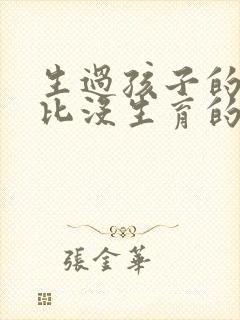 生過孩子的
比沒生育的
張金華